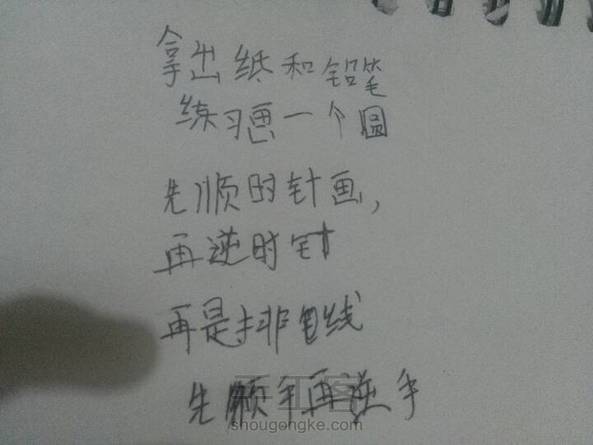 拿出纸和铅笔
练习画一个圆
先顺时针画，
再逆时针
再是排线
先顺手再逆手
shougongke.com